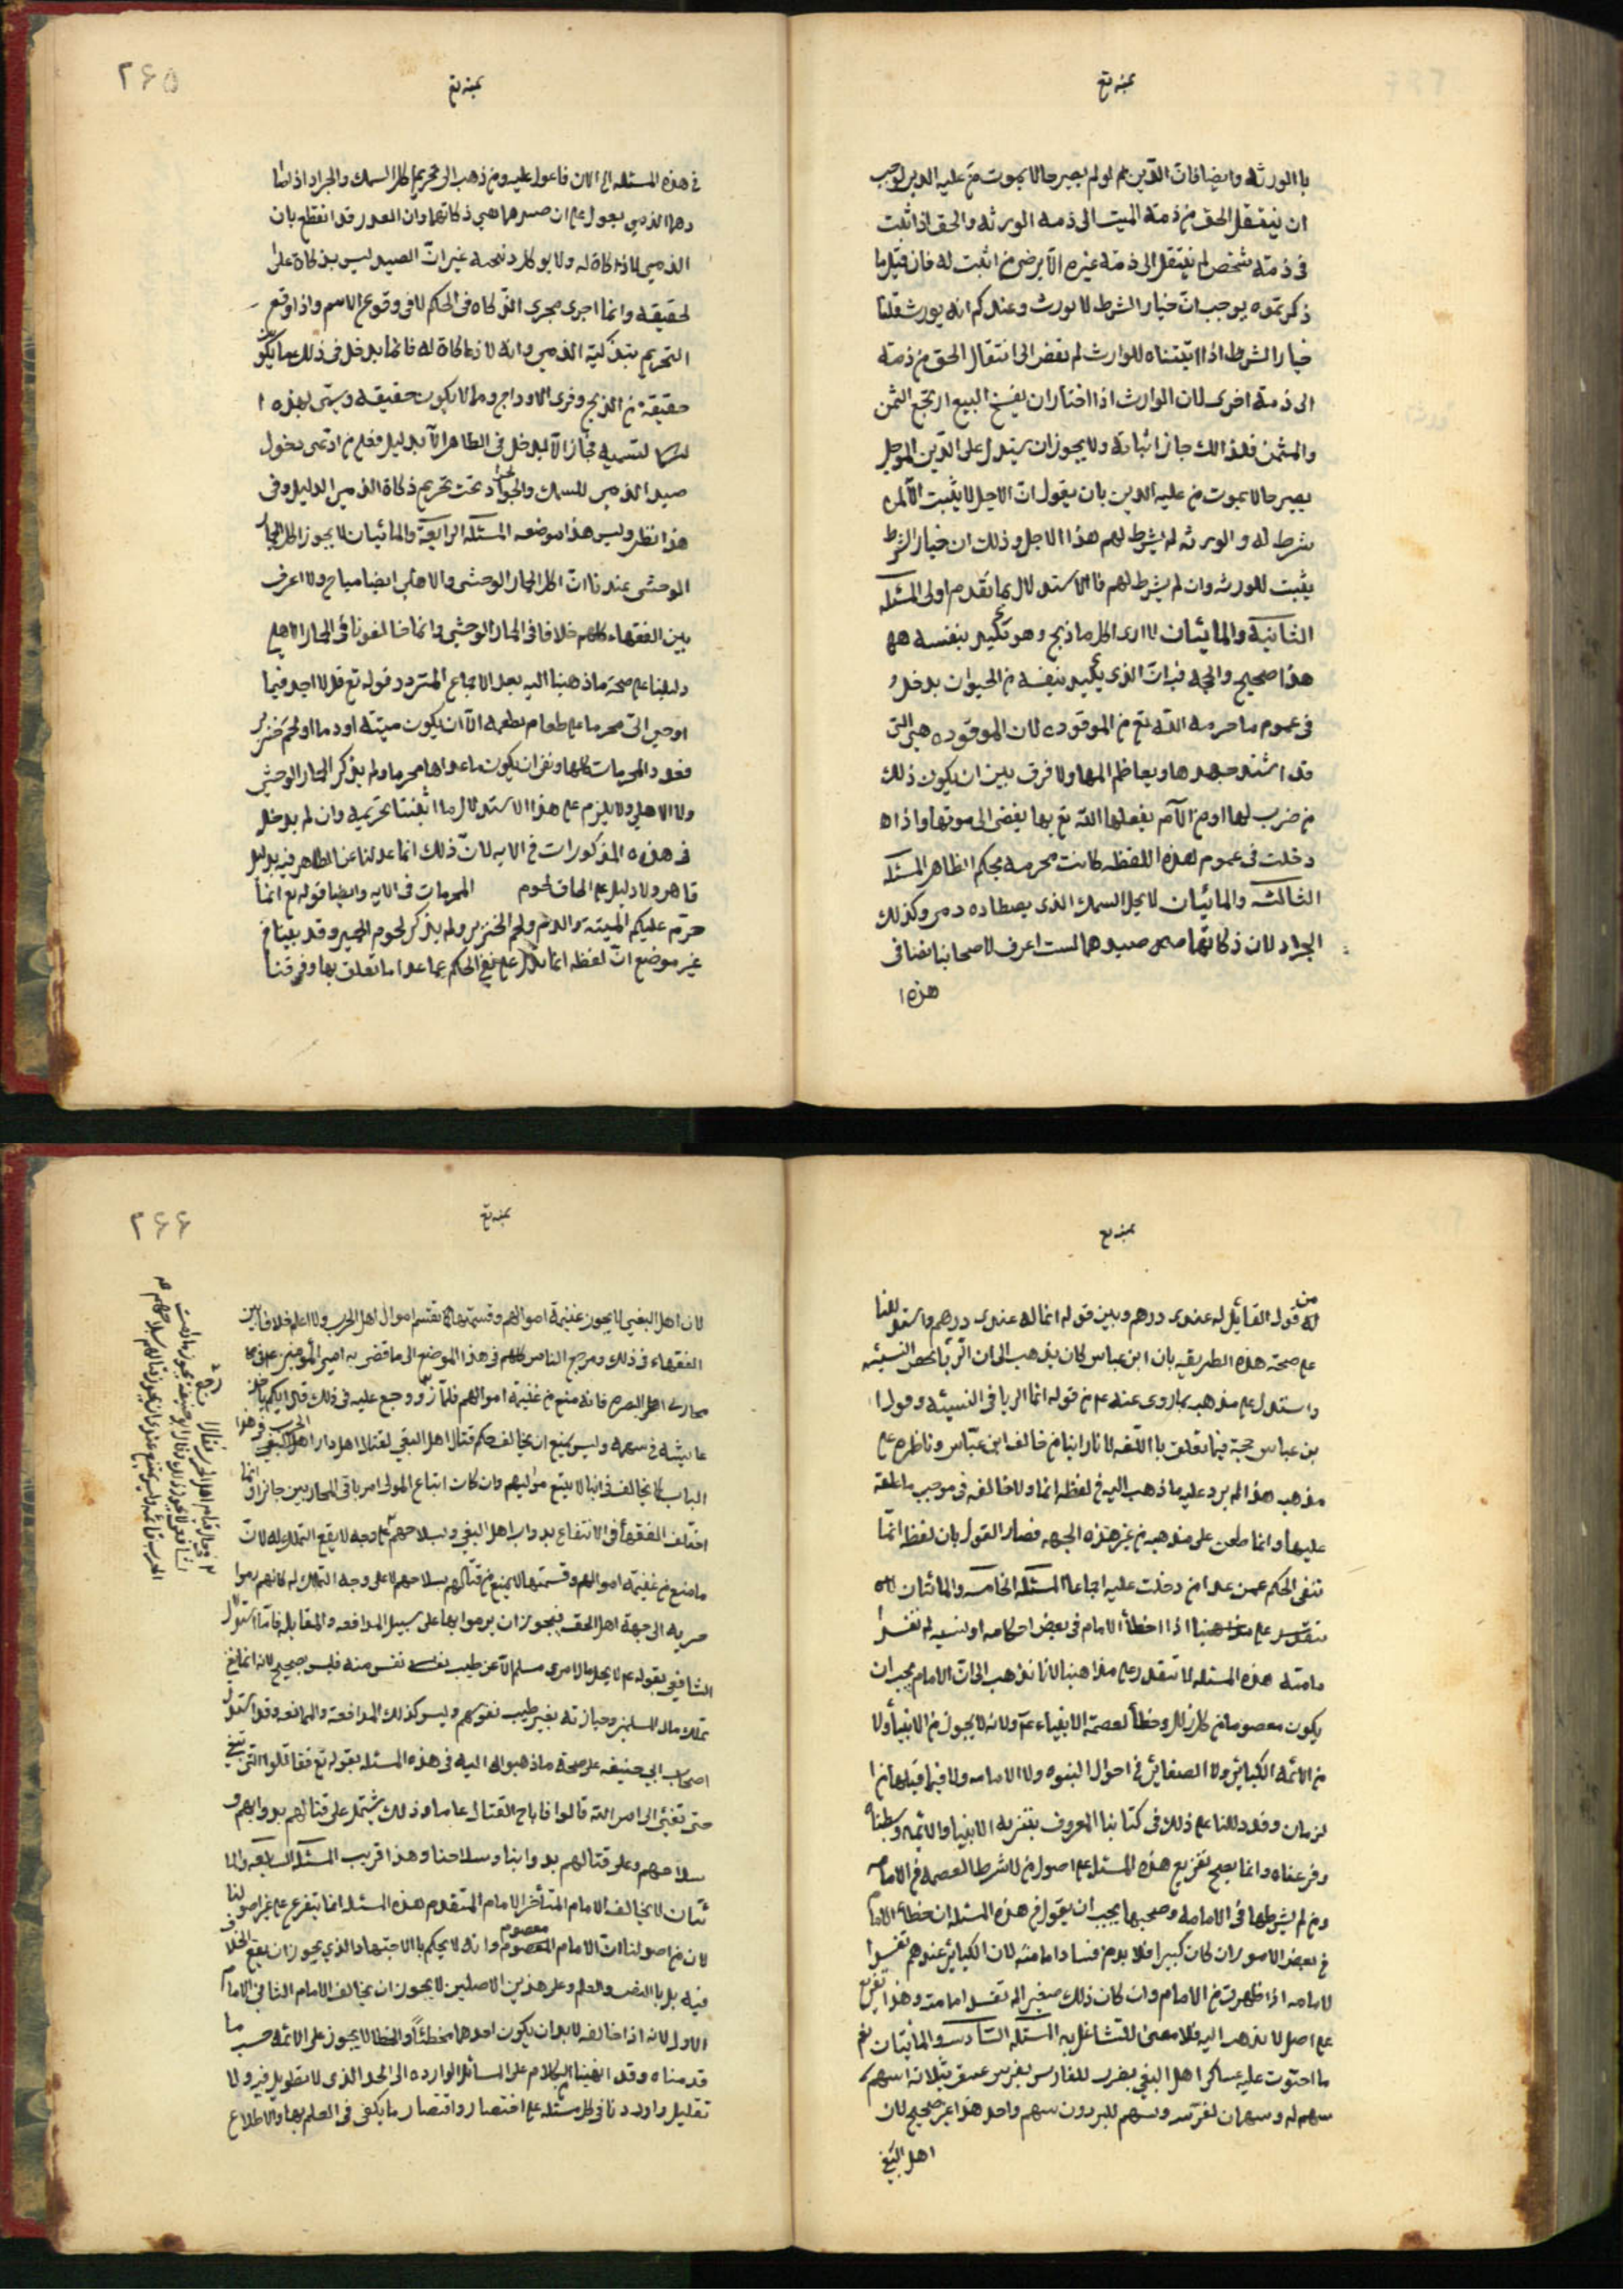 بمنه تع
با الورثة وايضا فان الدين لو لم يصير حالا بموت من عليه الدين لوجب
ان ينتقل الحق من ذمة الميت الى ذمه الورثه والحق اذا ثبت
فى ذمته شخص لم ينتقل الى ذمة غيره الا برضى من اثبت له فان قيل ما
ذكرتموه يوجب ان خيار الشرط لا يورث وعندكم انه يورث قلنا
خيار الشرط اذا اثبتناه للوارث لم نفض الى انتقال الحق من ذمته
الى ذمة اخرى لان الوارث اذا اختار ان يفسخ البيع ارتجع الثمن
والمثمن فلذالك جاز اثباته ولا يجوز ان يستدل على ان الدين الموجل
يصير حالا بموت من عليه الدين بان يقول ان الاجل لا يثبت الا لمن
شرط له والورثه لم يشرط لهم هذا الاجل وذلك ان خيار الشرط
يثبت للورثه وان لم يشرط لهم فالاستدلال بما تقدم اولى المسئله
الثانية والمائيتان لا ارى اكل ما ذبح وهو يكيد بنفسه
هذا صحيح والوجه فيه ان الذى يكيد بنفسه من الحيوان يدخل
فى عموم ما حرمه الله تع من الموقوده لان الموقوده هى التى
قد اشتد جهدها وتعاظم المها ولا فرق بين ان يكون ذلك
من ضرب لها او من الآم يفعلها الله تع بها يفضى الى موتها واذا
دخلت فى عموم هذه اللفظه كانت محرمه بحكم الظاهر المسئله
الثالثه والمائيتان لا يحل السمك الذى يصطاده ذمى وكذلك
الجراد لان ذكاتهما صيدهما لست اعرف لاصحابنا نصا فى
هذه ا
٢٦٥
بمنه تع
فى هذه المسئله الى الان فاعول عليه ومن ذهب الى تحريم اكل السمك والجراد اذا
الذمى يعول على ان صيدهما هى ذكاتهما وان العذر قد انقطع بان
الذمى لا ذكاة له ولا يوكل ذبيحه غير ان الصيد ليس بذكاة على
لحقيقه وانما اجرى مجرى الذكاه فى الحكم لا فى وقوع الاسم واذا وقع
التحريم بتذكية الذمى وانه لا ذكاة له فانما يدخل فى ذلك ما يكون
حقيقة من الذبح وفرى الاوداج وما لا يكون حقيقه ويسمى بهذه ا
لتسميه مجازا لا يدخل فى الظاهر الا بدليل فعلى من ادعى دخول
صيد الذمى للسمك والجراد تحت تحريم ذكاة الذمى الدليل وفى
هذا نظر وليس هذا موضعه المسئله الرابعة والمائيتان لا يجوز اكل الحمار
الوحشى عندنا ان اكل الحمار الوحشى والاهلى ايضا مباح ولا اعرف
بين الفقهاء كلهم خلافا فى الحمار الوحشى وانما خالفونا فى الحمار الاهلى
دليلنا على صحة ما ذهبنا اليه بعد الاجماع المتردد قوله تع قل لا اجد فيما
اوحى الى محرما على طاعم يطعمه الا ان يكون ميتة او دما او لحم خنزير
فعدد المحرمات كلها ونفى ان يكون ما عداها محرما ولم يذكر الحمار الوحشى
ولا الاهلى ولا يلزم على هذا الاستدلال ما اثبتنا تحريمه وان لم يدخل
فى هذه المذكورات فى الايه لان ذلك انما عدلنا عن الظاهر فيه بدليل
قاهر ولا دليل على الحاق لحوم المحرمات فى الايه وايضا قوله تع انما
حرم عليكم الميتة والدم ولحم الخنزير ولم يذكر لحوم الحمير وقد بينا فى
غير موضع ان لفظه انما تدل على نفى الحكم عما عدا ما تعلق بها وفرقنا
بمنه تع
بين قول القائل له عندى درهم وبين قوله انما له عندى درهم واستدللنا
على صحة هذه الطريقه بان ابن عباس كان يذهب الى ان الربا يختص النسيئه
واستدل على مذهبه بما روى عنه من قوله انما الربا فى النسيئه وقول ا
بن عباس حجة فيما تعلق با اللغه لانا راينا من خالف ابن عباس وناظره على
مذهبه هذا لم يرد عليه ما ذهب اليه فى لفظه انما ولا خالفه فى موجب ما علقه
عليها وانما طعن على مذهبه من غير هذه الجهه فصار القول بان لفظ انما
تنفى الحكم عمن عدا من دخلت عليه اجماعا المسئله الخامسه والمائتان
على مذهبنا اذا اخطأ الامام فى بعض احكامه او نسيه لم تفسد
مامته هذه المسئله لا تتقدر على مذاهبنا لانا نذهب الى ان الامام يجب ان
يكون معصوما من كل زلل وخطأ لعصمة الانبياء ولانه لا يجوز من الانبيأ ولا
من الائمه الكبائر ولا الصغائر فى احوال النبوه والامامه ولا فيما قبلها من ا
لزمان وقد دللنا على ذلك فى كتابنا المعروف بتنزيه الانبيا والائمه وبسطناه
وفرعناه وانما يصح تفريع هذه المسئله على اصول من لا شرط العصمه فى الامامه
ومن لم يشرطها فى الامامه وصحبها يجب ان يقول فى هذه المسئله ان خطاء الامام
فى بعض الامور ان كان كبيرا فلا بد من فساد امامته لان الكبائر عندهم تفسد ا
لامامه اذا ظهرت من الامام وان كان ذلك صغيرا لم تفسد امامته وهذا تفريع
على اصل لا نذهب اليه فلا معنى للتشاغل به المسئله السادسه والمائتان يغنم
ما احتوت عليه عساكر اهل البغى يضرب للفارس بفرس عتيق ثلاثة اسهم
سهم له وسهمان لفرسه ويسهم للبرذون سهم واحد هذا غير صحيح لان
اهل البغى
٢٦٦
بمنه تع
لان اهل البغى لا يجوز غنيمة اموالهم وقسمتها كما تقسم اموال اهل الحرب ولا اعلم خلافا بين
الفقهاء فى ذلك ومرجع الناس كلهم فى هذا الموضع الى ما قضى به امير المؤمنين فى
محاربى اهل البصره فانه منع من غنيمة اموالهم فلما روجع عليه فى ذلك قال ايكم ياخذ
عايشه فى سهمه وليس يمتنع ان يخالف حكم قتال اهل البغى لقتال اهل دار الحرب فى هذا
الباب كما يخالف فى اننا لا نتبع موليهم وان كان اتباع المولى من باقى المحاربين جائز انما
اختلف الفقهأ فى الانتفاع بدواب اهل البغى وبسلاحهم على وجه لا يقع التملك له لان
ما منع من غنيمة اموالهم وقسمتها لا يمنع من قتالهم بسلاحهم لا على وجه التملك له كانهم رموا
حربه الى جهة اهل الحق فيجوز ان يرموا بها على سبيل المدافعه والمقابله فاما استدلال
الشافعى بقوله لا يحل مال امرى مسلم الا عن طيب نفس منه فليس بصحيح لانه انما نفى
تملك مال المسلمين وحيازته بغير طيب نفوسهم وليس كذلك المدافعة والممانعه وقد استدل
اصحاب ابى حنيفه على صحة ما ذهبوا اليه فى هذه المسئله بقوله تع فقاتلوا التى تبغى
حتى تفيئ الى امر الله قالوا فاباح القتال عاما وذلك يشتمل على قتالهم بدوابهم و
سلاحهم وعلى قتالهم بدوابنا وسلاحنا وهذا قريب المسئله السابعه والما
ئتان لا يخالف الامام المتأخر الامام المتقدم هذه المسئله انما يتفرع على غير اصولنا
لان من اصولنا ان الامام معصوم وانه لا يحكم با الاجتهاد الذى يجوز ان يقع الخلاف
فيه بل با النص والعلم وعلى هذين الاصلين لا يجوز ان يخالف الامام الثانى الامام
الاول لانه اذا خالفه لا بد ان يكون احدهما مخطئا والخطا لا يجوز على الائمه حسب ما
قدمناه وقد انهينا الكلام على المسائل الوارده الى الحد الذى لا تطويل فيه ولا
تقليل واوردنا فى كل مسئله على اختصار واقتصار ما يكفى فى العلم بها والاطلاع